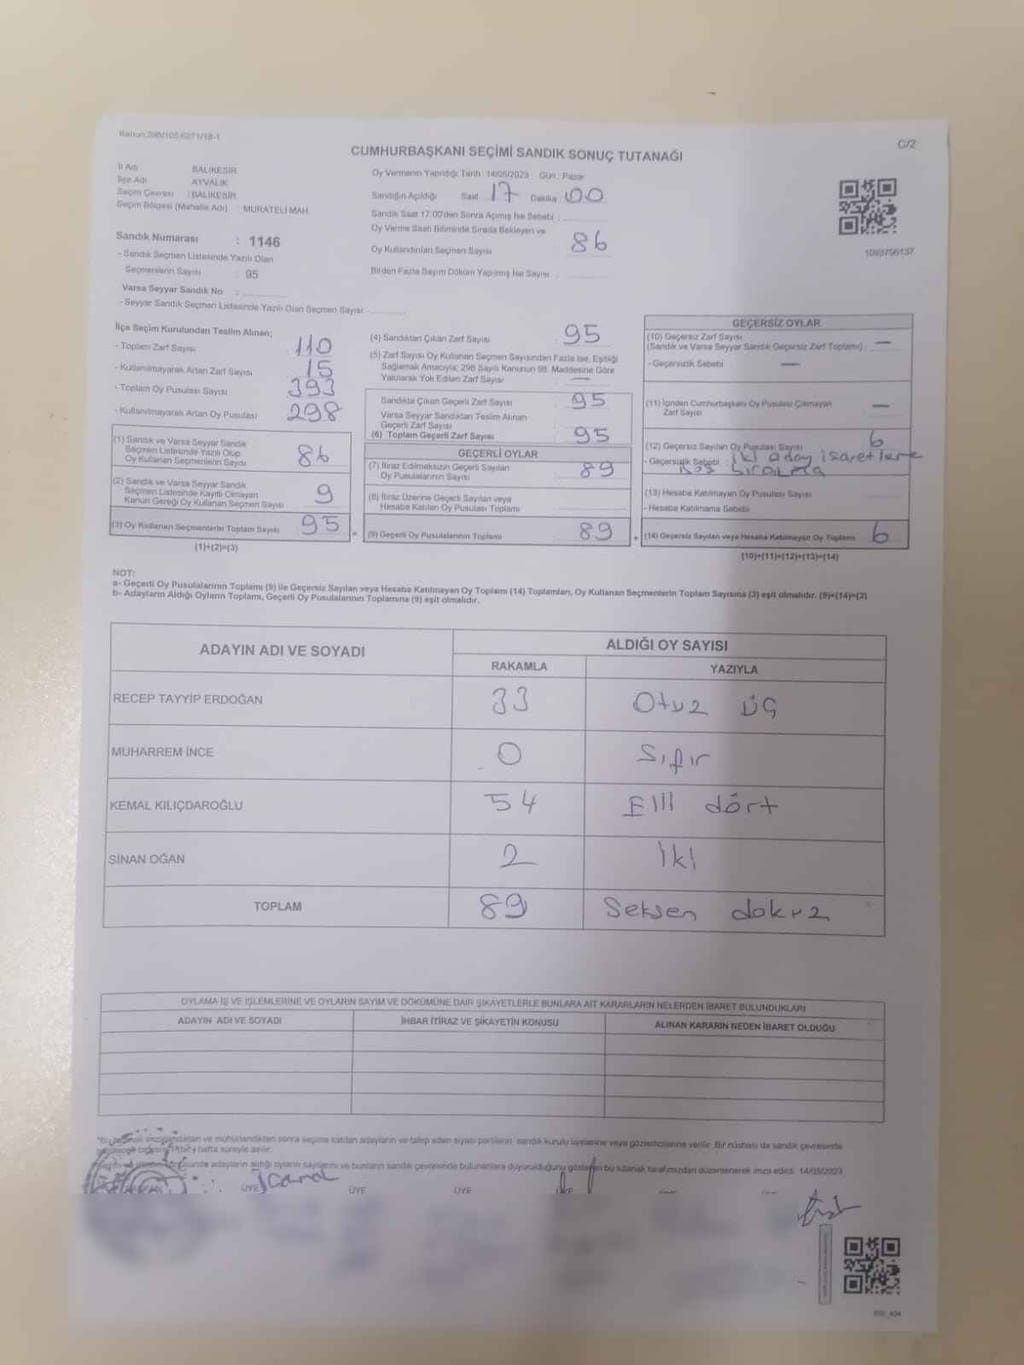 Kanun:298/105-6271/18-1
C/2
CUMHURBAŞKANI SEÇİMİ SANDIK SONUÇ TUTANAĞI
İl Adı : BALIKESİR
İlçe Adı : AYVALIK
Seçim Çevresi : BALIKESİR
Seçim Bölgesi (Mahalle Adı) : MURATELİ MAH.
Sandık Numarası : 1146
- Sandık Seçmen Listesinde Yazılı Olan
Seçmenlerin Sayısı : 95
Varsa Seyyar Sandık No :
- Seyyar Sandık Seçmen Listesinde Yazılı Olan Seçmen Sayısı
Oy Vermenin Yapıldığı Tarih : 14/05/2023 Gün : Pazar
Sandığın Açıldığı Saat 17 Dakika 00
Sandık Saat 17.00'den Sonra Açılmış İse Sebebi :
Oy Verme Saati Bitiminde Sırada Bekleyen ve
Oy Kullandırılan Seçmen Sayısı 86
Birden Fazla Sayım Döküm Yapılmış İse Sayısı :
1093706137
İlçe Seçim Kurulundan Teslim Alınan;
- Toplam Zarf Sayısı 110
- Kullanılmayarak Artan Zarf Sayısı 15
- Toplam Oy Pusulası Sayısı 393
- Kullanılmayarak Artan Oy Pusulası 298
(1) Sandık ve Varsa Seyyar Sandık
Seçmen Listesinde Yazılı Olup
Oy Kullanan Seçmenlerin Sayısı 86
(2) Sandık ve Varsa Seyyar Sandık
Seçmen Listesinde Kayıtlı Olmayan
Kanun Gereği Oy Kullanan Seçmen Sayısı 9
(3) Oy Kullanan Seçmenlerin Toplam Sayısı 95
(1)+(2)=(3)
(4) Sandıktan Çıkan Zarf Sayısı 95
(5) Zarf Sayısı Oy Kullanan Seçmen Sayısından Fazla İse, Eşitliği
Sağlamak Amacıyla; 298 Sayılı Kanunun 98. Maddesine Göre
Yakılarak Yok Edilen Zarf Sayısı —
Sandıkta Çıkan Geçerli Zarf Sayısı 95
Varsa Seyyar Sandıktan Teslim Alınan
Geçerli Zarf Sayısı
(6) Toplam Geçerli Zarf Sayısı 95
GEÇERLİ OYLAR
(7) İtiraz Edilmeksizin Geçerli Sayılan
Oy Pusulalarının Sayısı 89
(8) İtiraz Üzerine Geçerli Sayılan veya
Hesaba Katılan Oy Pusulası Toplamı
= (9) Geçerli Oy Pusulalarının Toplamı 89
GEÇERSİZ OYLAR
(10) Geçersiz Zarf Sayısı
(Sandık ve Varsa Seyyar Sandık Geçersiz Zarf Toplamı) —
- Geçersizlik Sebebi —
(11) İçinden Cumhurbaşkanı Oy Pusulası Çıkmayan
Zarf Sayısı —
(12) Geçersiz Sayılan Oy Pusulası Sayısı 6
- Geçersizlik Sebebi : iki aday isaretleme
Boş bırakma
(13) Hesaba Katılmayan Oy Pusulası Sayısı
- Hesaba Katılmama Sebebi
+ (14) Geçersiz Sayılan veya Hesaba Katılmayan Oy Toplamı 6
(10)+(11)+(12)+(13)=(14)
NOT:
a- Geçerli Oy Pusulalarının Toplamı (9) ile Geçersiz Sayılan veya Hesaba Katılmayan Oy Toplamı (14) Toplamları, Oy Kullanan Seçmenlerin Toplam Sayısına (3) eşit olmalıdır. (9)+(14)=(3)
b- Adayların Aldığı Oyların Toplamı, Geçerli Oy Pusulalarının Toplamına (9) eşit olmalıdır.
ADAYIN ADI VE SOYADI
ALDIĞI OY SAYISI
RAKAMLA YAZIYLA
RECEP TAYYİP ERDOĞAN 33 Otuz üç
MUHARREM İNCE 0 Sıfır
KEMAL KILIÇDAROĞLU 54 Elli dört
SİNAN OĞAN 2 İki
TOPLAM 89 Seksen dokuz
OYLAMA İŞ VE İŞLEMLERİNE VE OYLARIN SAYIM VE DÖKÜMÜNE DAİR ŞİKAYETLERLE BUNLARA AİT KARARLARIN NELERDEN İBARET BULUNDUKLARI
ADAYIN ADI VE SOYADI İHBAR İTİRAZ VE ŞİKAYETİN KONUSU ALINAN KARARIN NEDEN İBARET OLDUĞU
ve mühürlendikten sonra seçime katılan adayların ve talep eden siyasi partilerin sandık kurulu üyelerine veya gözlemcilerine verilir. Bir nüshası da sandık çevresinde
hafta süreyle asılır.
adayların aldığı oyların sayılarını ve bunların sandık çevresinde bulunanlara duyurulduğunu gösteren bu tutanak tarafımızdan düzenlenerek imza edildi. 14/05/2023
ÜYE ÜYE ÜYE ÜYE